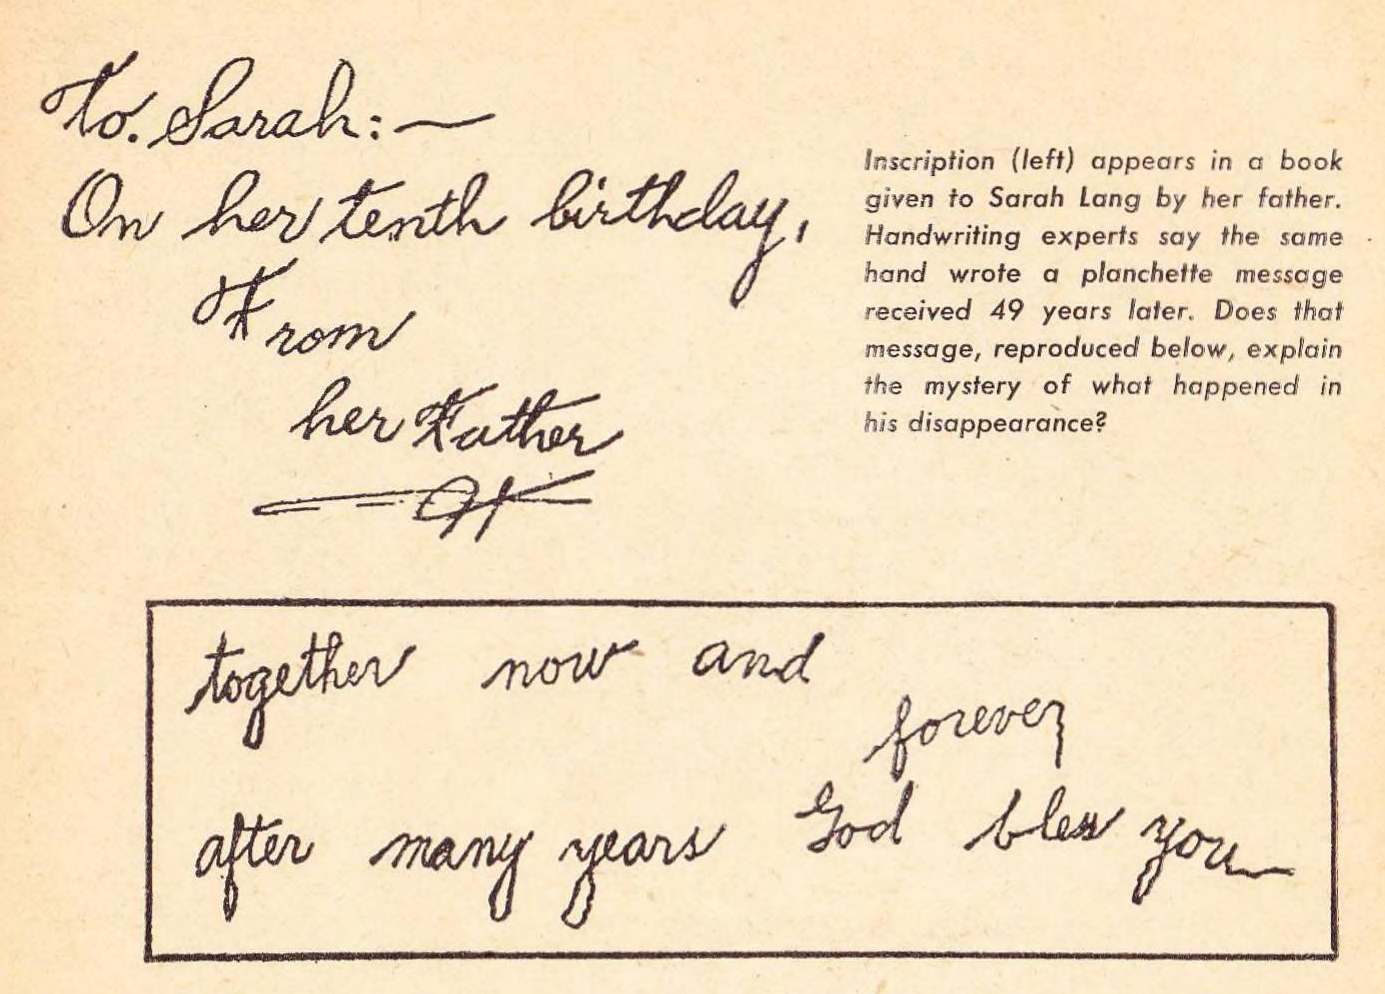 To. Sarah:—
On her tenth birthday,
From
her Father
Inscription (left) appears in a book
given to Sarah Lang by her father.
Handwriting experts say the same
hand wrote a planchette message
received 49 years later. Does that
message, reproduced below, explain
the mystery of what happened in
his disappearance?
together now and
forever
after many years God bless you